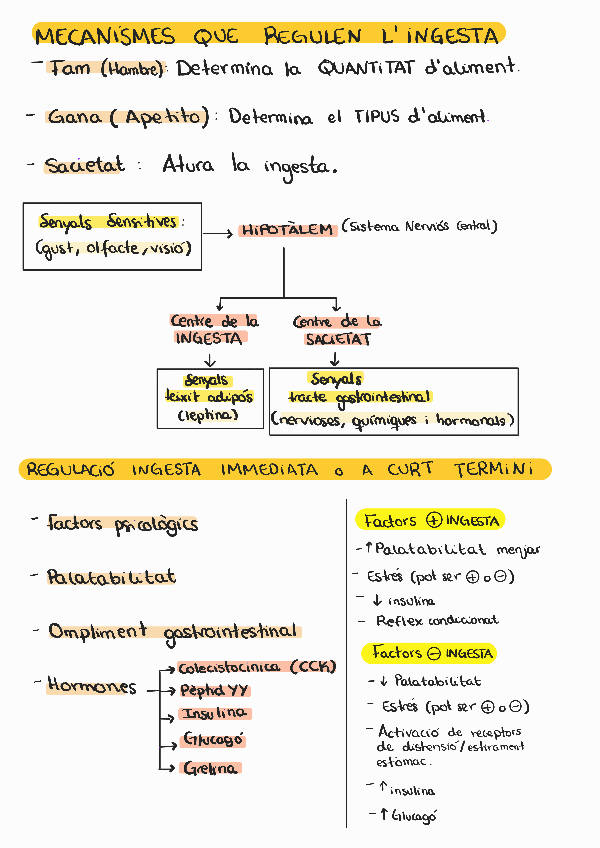 MECANISMES QUE REGULEN L'INGESTA
- Fam (Hambre): Determina la QUANTITAT d'aliment.
- Gana (Apetito): Determina el TIPUS d'aliment.
- Sacietat : Atura la ingesta.
Senyals Sensitives:
(gust, olfacte, visió)
HIPOTÀLEM (Sistema Nerviós Central)
Centre de la
INGESTA
Centre de la
SACIETAT
Senyals
teixit adipós
(leptina)
Senyals
tracte gastrointestinal
(nervioses, químiques i hormonals)
REGULACIÓ INGESTA IMMEDIATA o A CURT TERMINI
- Factors psicològics
- Palatabilitat
- Ompliment gastrointestinal
- Hormones
Colecistocinica (CCK)
Pèptid YY
Insulina
Glucagó
Grelina
Factors ⊕ INGESTA
- ↑ Palatabilitat menjar
- Estrés (pot ser ⊕ o ⊖)
- ↓ insulina
- Reflex condicionat
Factors ⊖ INGESTA
- ↓ Palatabilitat
- Estrés (pot ser ⊕ o ⊖)
- Activació de receptors
de distensió/estirament
estomac.
- ↑ insulina
- ↑ Glucagó